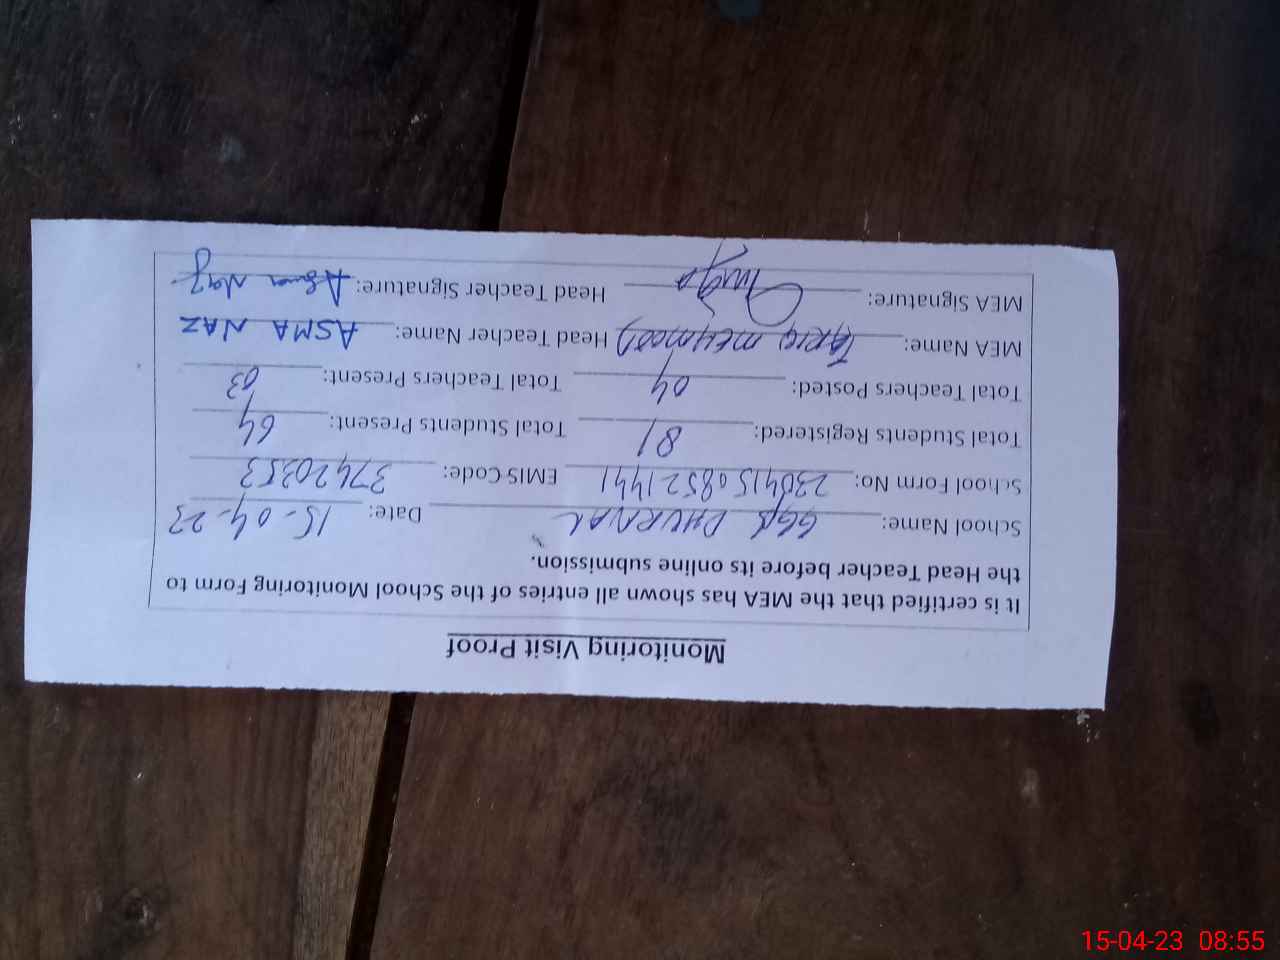 Monitoring Visit Proof
It is certified that the MEA has shown all entries of the School Monitoring Form to
the Head Teacher before its online submission.
School Name: GGPS DHURNAL Date: 15-04-23
School Form No: 23041508521441 EMIS Code: 37420353
Total Students Registered: 81 Total Students Present: 64
Total Teachers Posted: 04 Total Teachers Present: 03
MEA Name: TARIQ MEHMOOD Head Teacher Name: ASMA NAZ
MEA Signature: Head Teacher Signature: Asma Naz
15-04-23 08:55